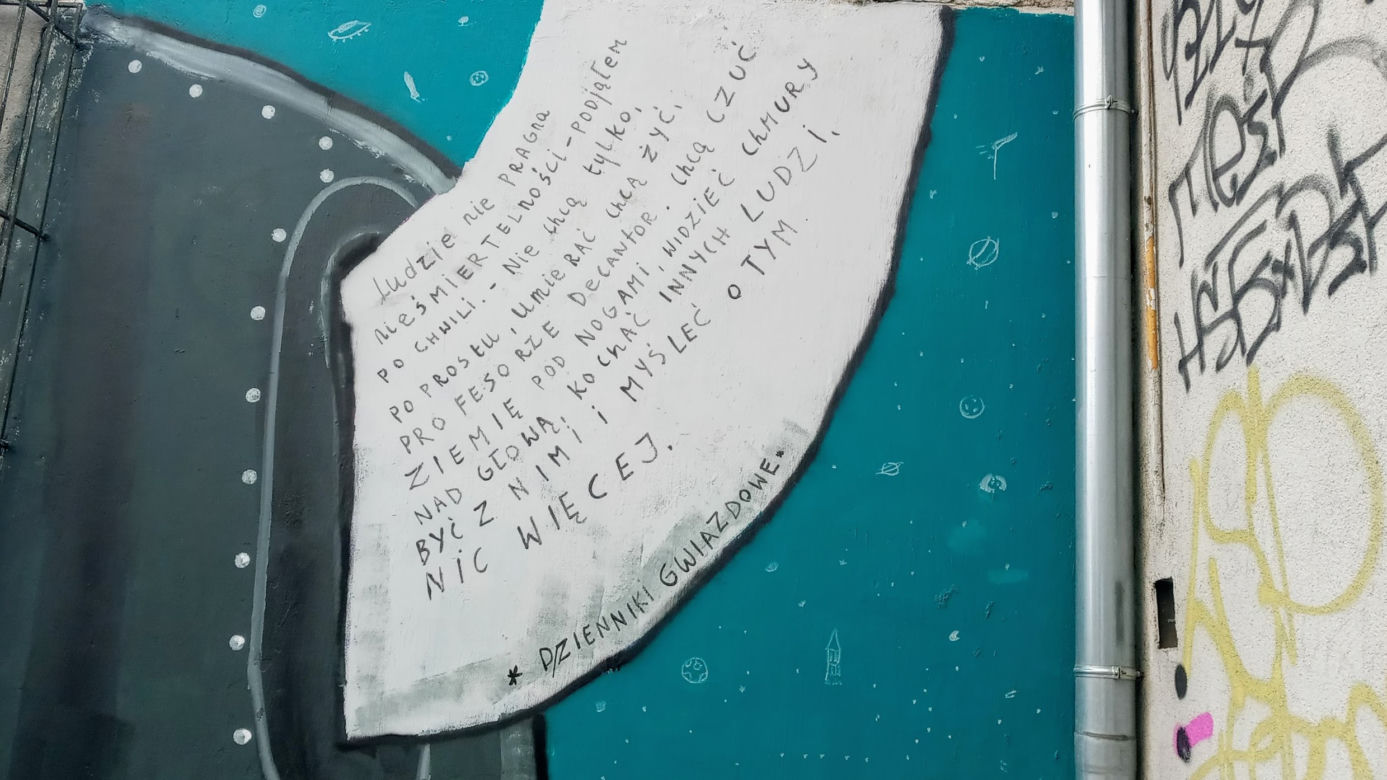 Ludzie nie PRAGNą
NIEŚMIERTELNOŚCI - PODJĄŁEM
PO CHWILI. - Nie chcą tylko,
PO PROSTU, UmieRAĆ. chcą ŻYĆ,
PROFESORZE DECANTOR. chcą CZUĆ
ZIEMIĘ POD NOGAMI, WIDZIEĆ ChMURY
NAD GŁOWĄ, KOChAĆ INNYCH LUDZI,
BYĆ Z NIMI i MYŚLEĆ O TYM.
NIC WIĘCEJ.
* DZIENNIKI GWIAZDOWE.